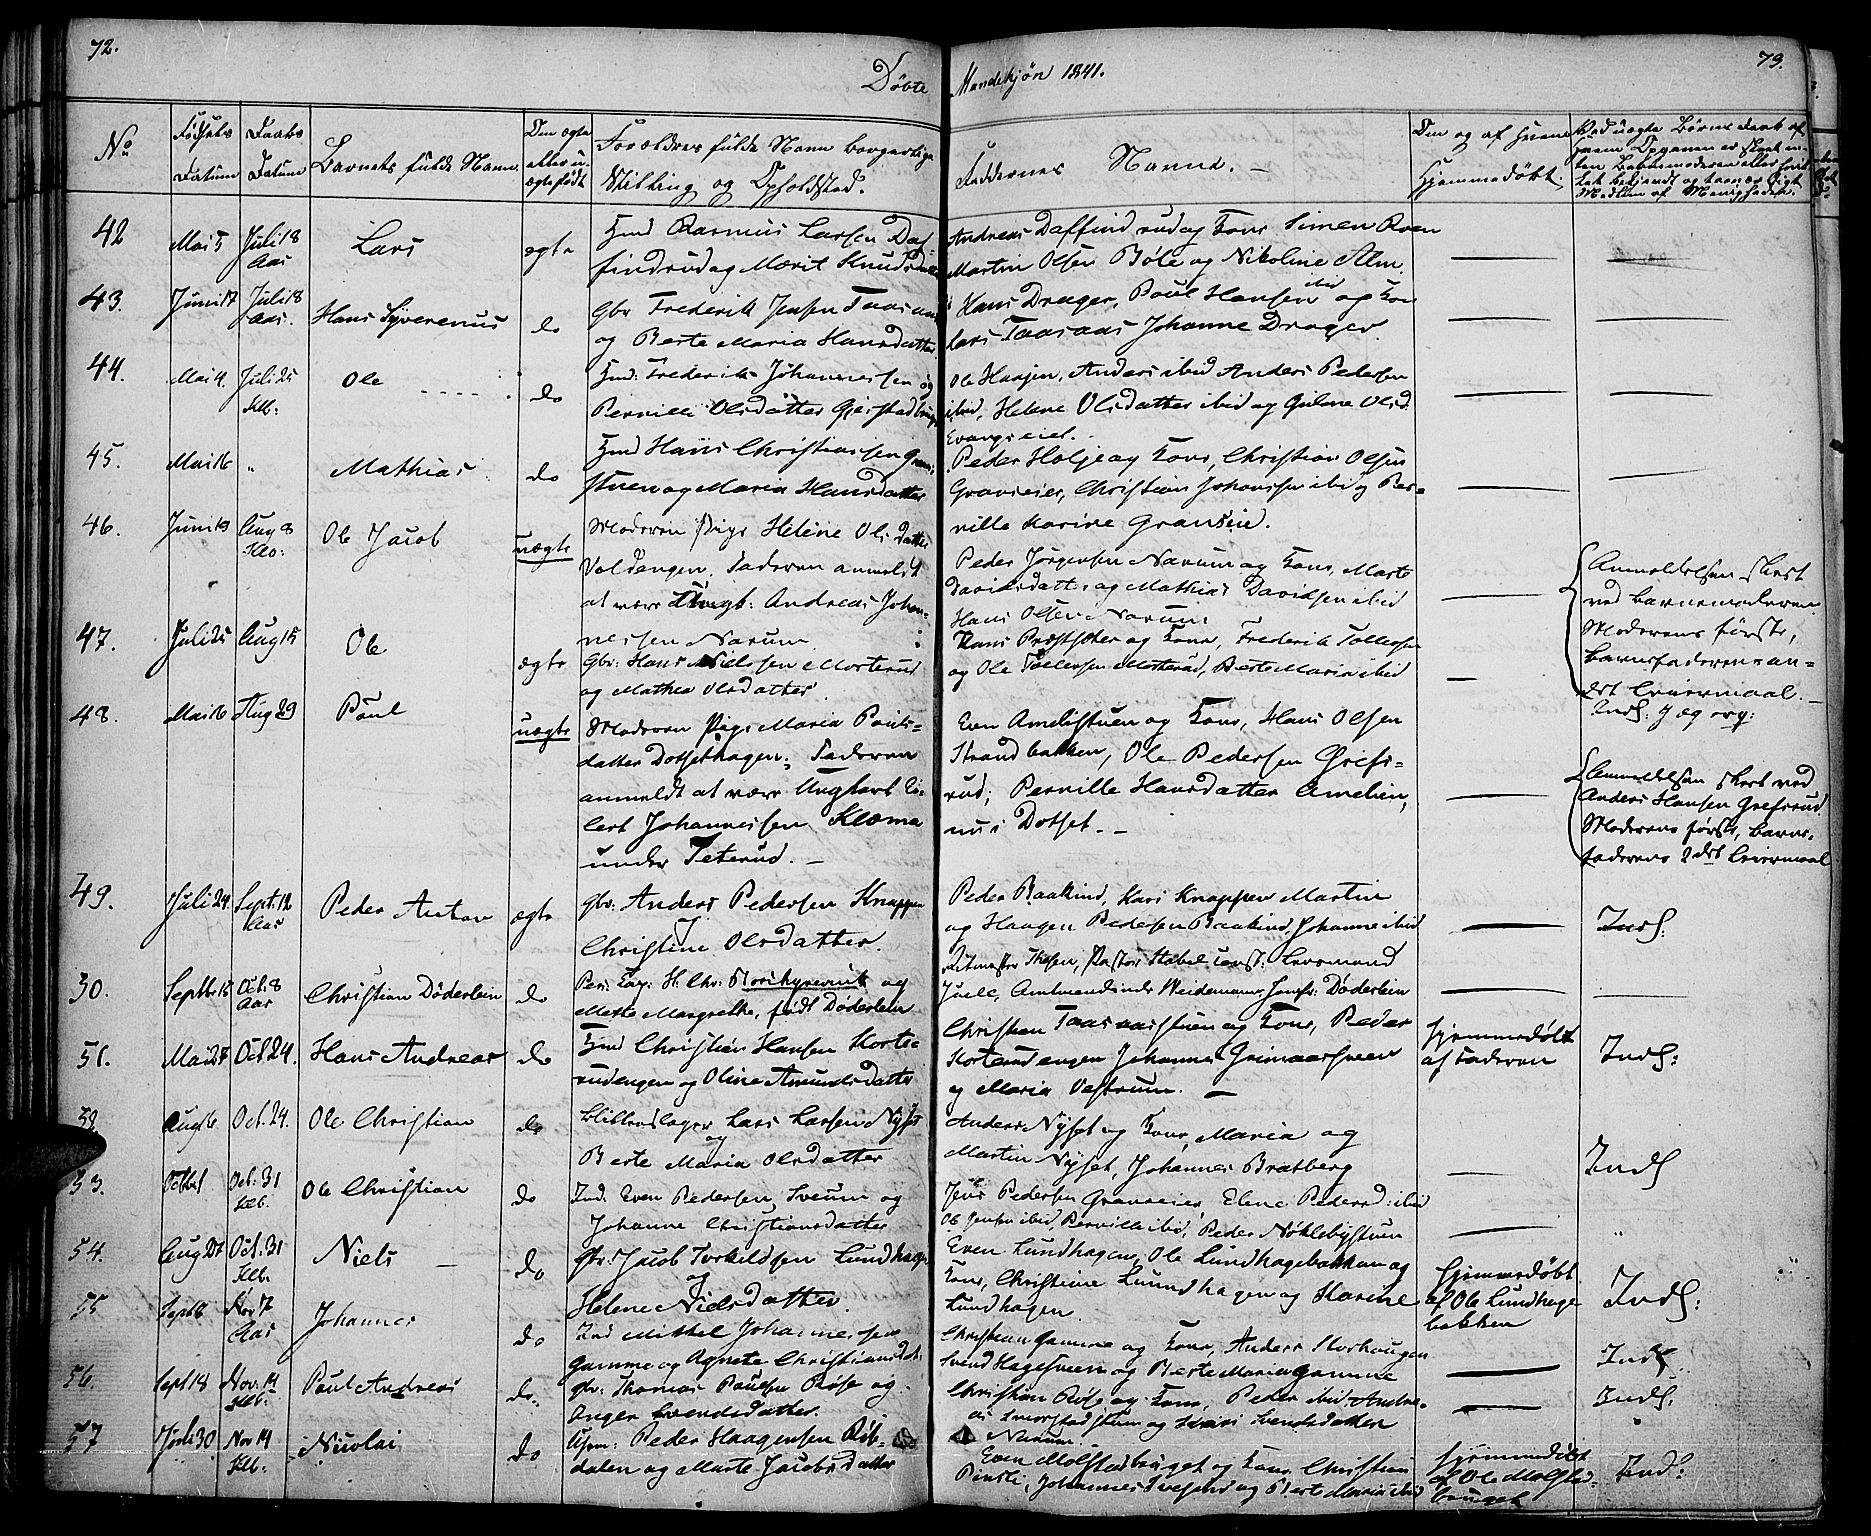 72.
Døbte
Mandekjøn 1841.
73.
No
Fødsels Datum
Daabs Datum
Barnets fulde Navn
Om ægte eller uægtefødt
Forældres fulde Navn borgerlige
Stilling og Opholdsted.
Faddernes Navne. -
Om og af hvem
Hjemmedøbt.
42 Mai 5 Juli 18 Aas Lars ægte
Hmd Rasmus Larsen Daf-
findrud og Marit Knudsdatter
Andreas Daffindrud og Kone Simen Roen
Martin Olsen Bøle og Nikoline Alm.
43. Juni 17 Juli 18 Aas. Hans Syverenus do
Gbr Frederik Jensen Taasaas
og Berte Maria Hansdatter
Hans Drager, Poul Hansen ibid og Kone
Lars Taasaas Johanne Drager.
44. Mai 4. Juli 25 Klb: Ole do
Hmd: Frederik Johannessen og
Pernille Olsdatter
Ole Haajen, Anders ibid Anders Pedersen
ibid, Helene Olsdatter ibid og Gulene Olsd.
45. Mai 16 " Mathias do
Hmd Hans Christiansen
stuen og Maria Hansdatter
Peder Holje og Kone, Christian Olsen
Graneeier, Christian Johansen ibid og Per-
nille Karine Graneeie.
46. Juni 13 Aug 8 Klb: Ole Jacob uægte
Moderen Pige Helene Olsdatter
Voldengen. Faderen anmeldt
at være Ungk: Andreas Johan-
nessen Narum
Peder Jørgensen Narum og Kone, Marte
Davidsdatter og Mathias Davidsen ibid
Hans Olsen Narum.
Anmeldelsen skeet
ved Barnemoderen
Moderens første,
Barnefaderens an-
det Leiermaal.
47. Juli 25 Aug 15 Ole ægte
Gbr: Hans Nielssen Morterud
og Mathea Olsdatter
Hans Præstsæter og Kone, Frederik Tollefsen
og Ole Tollefsen Morterud, Berte Maria ibid
48. Mai 16 Aug 29 Poul uægte
Moderen Pige Maria Pouls-
datter Dotsethagen; Faderen
anmeldt at være Ungkarl Ei-
lert Johannessen Klæma
under Teterud. -
Even Amelistuen og Kone, Hans Olsen
Strandbakken, Ole Pedersen Grefs-
rud; Pernille Hansdatter Amelien,
nu i Dotset. -
Anmeldelsen skeet ved
Anders Hansen Grefsrud
Moderens første, Barne-
faderens 2det Leiermaal
49. Juli 24 Sept. 12 Aas Peder Anton ægte
Gbr: Anders Pedersen Knappen
Christine Olsdatter.
Peder Baakind, Kari Knappen Martin
og Haagen Pedersen Baakind, Johanne ibid
Inds:
50. Septbr 15 Oct: 8 Aas Christian Døderlein do
Per: Cap: H. Chr: og
Mette Margrethe, født Døderlein
Ritmester Thesen, Pastor Stabel Const: Lensmand
Juell, Amtmandinde Weidemann Jomfr: Døderlein
51. Mai 27 Oct 24. Hans Andreas do
Hmd Christian Hansen Korte-
rudengen og Oline Amundsdatter
Christian Taasaasstuen og Kone, Peder
Korterudengen Johannes Grimaassveen
og Maria Vestrum. -
Hjemmedøbt
af Faderen
Inds:
52 Aug 6 Oct. 24. Ole Christian do
Lars Larsen Nyset
og
Berte Maria Olsdatter
Anders Nyset og Kone Maria og
Martin Nyset, Johannes Bratberg
Inds
53. Octbr 1 Oct: 31 Klb. Ole Christian do
Ind. Even Pedersen, Sveum og
Johanne Christiansdatter
Jens Pedersen Graneeier Elene Pedersd: ibid
Ole Jensen ibid, Pernille ibid, Peder Nøklebystuen
"
54. Aug 27 Oct. 31 Klb. Niels do
Gbr: Jacob Torkildsen Lundhagen
Helene Nielsdatter.
Even Lundhagen, Ole Lundhagebakken og
Kone, Christine Lundhagen og Karine
Lundhagen.
Hjemmedøbt
af Ole Lundhage-
bakken
Inds:
55 Sept 8 Nov 7 Aas Johannes do
Ind Mikkel Johannessen
Gamme og Agnete Christiansdat:
Christian Gamme og Kone, Anders Storhaugen
Svend Hagesveen og Berte Maria Gamme
Inds
56. Sept 18 Nov. 14 Klb. Poul Andreas do.
Gbr: Thomas Poulsen Røse og
Anger Svendsdatter.
Christian Røse og Kone, Peder ibid Andre-
as Smerstadstuen og Kari Svendsdatter
Narum.
Inds:
57 Juli 30 Nov 14 Klb. Nicolai do
Peder Haagensen Røb-
dalen og Marte Jacobsdatter
Even Mølstadbruget og Kone, Christian
Pinsli, Johannes og Berte Maria ibid
Hjemmedøbt
af Ole Mølstad-
bruget
Inds: